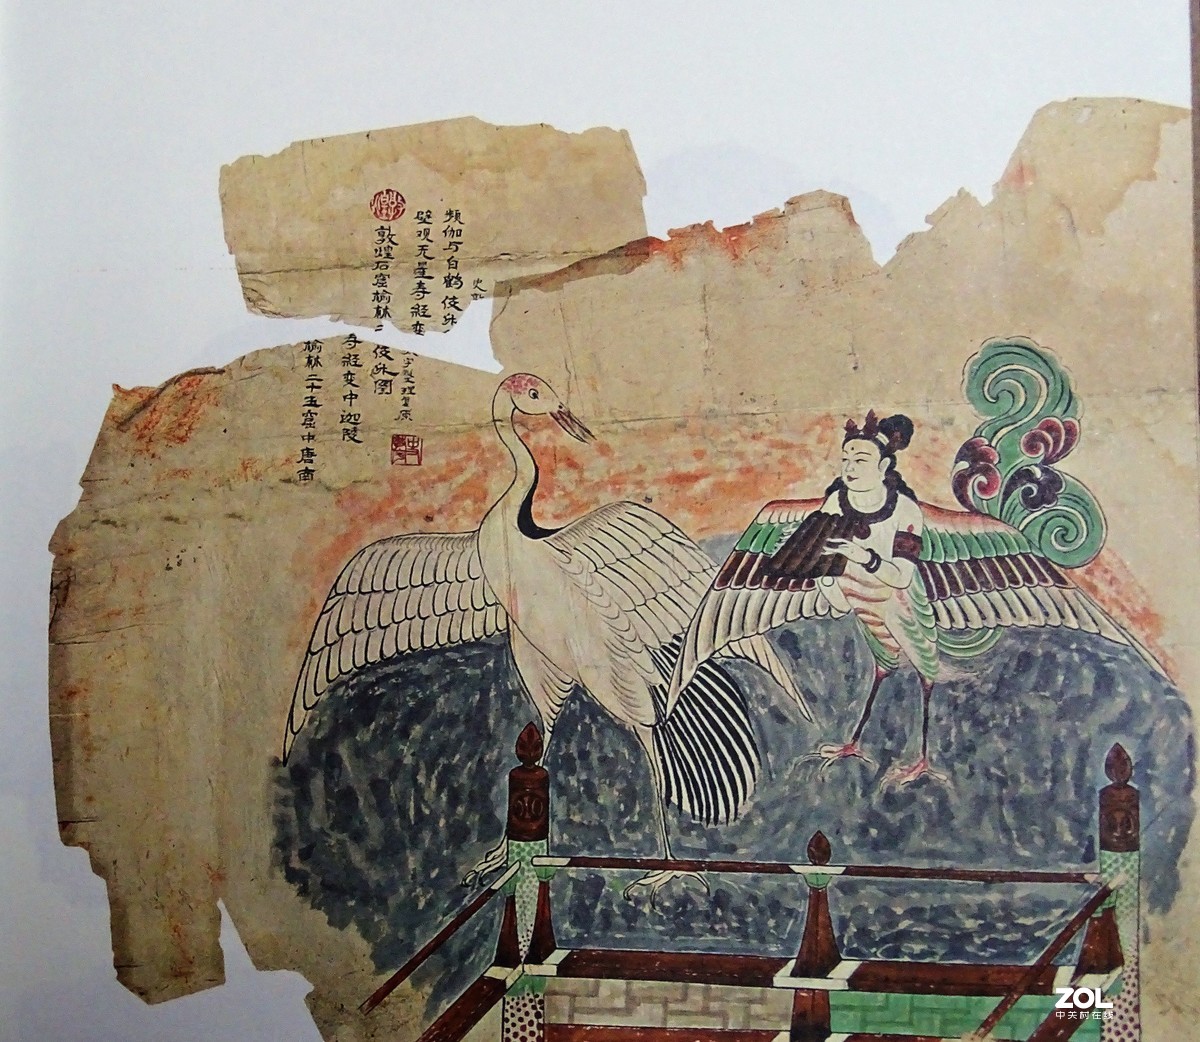 频伽与白鹤伎乐
壁观无量寿经变
敦煌石窟榆林二
整理复原
伎乐图
寿经变中迦陵
榆林二十五窟中唐南
ZOL
中关村在线